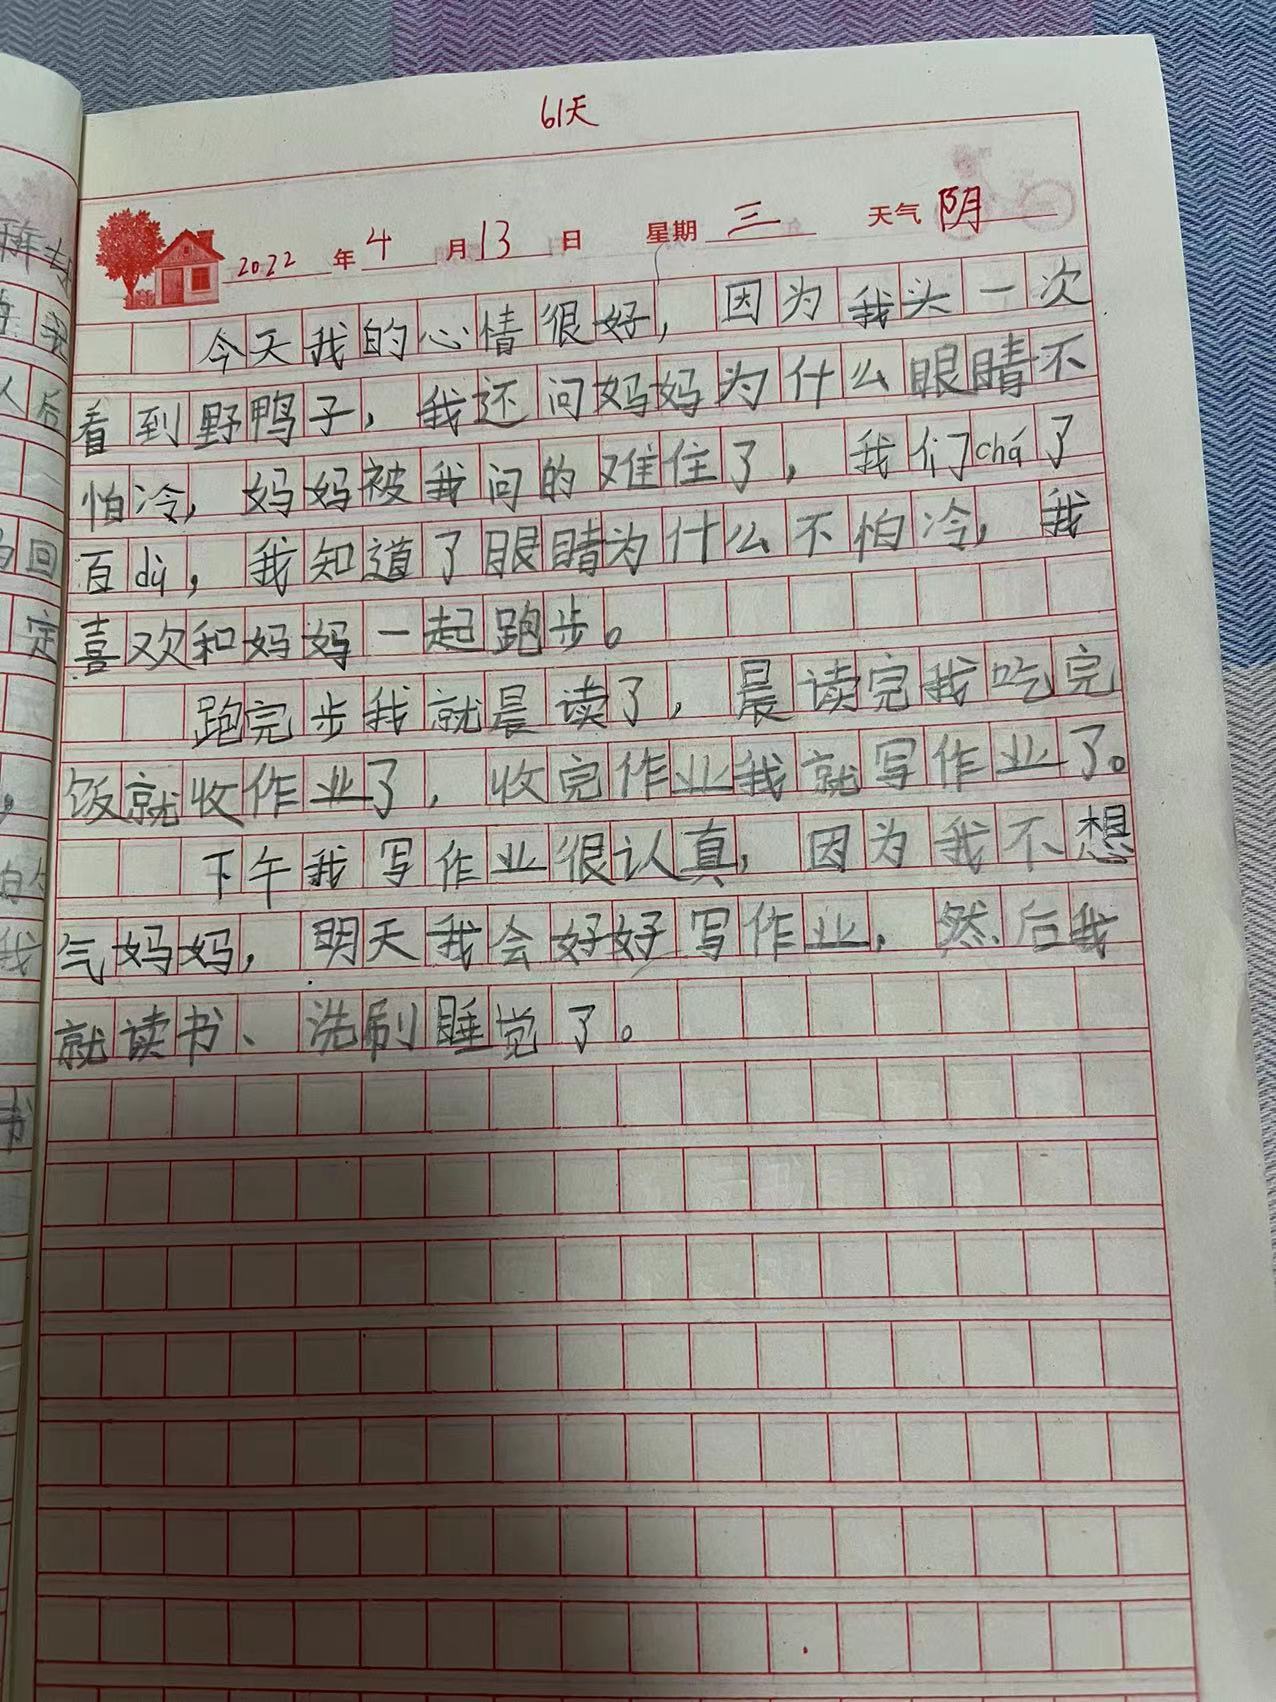 61天
2022年4月13日 星期三 天气阴
今天我的心情很好，因为我头一次
看到野鸭子，我还问妈妈为什么眼睛不
怕冷，妈妈被我问的难住了，我们chá了
百dù，我知道了眼睛为什么不怕冷，我
喜欢和妈妈一起跑步。
跑完步我就晨读了，晨读完我吃完
饭就收作业了，收完作业我就写作业了。
下午我写作业很认真，因为我不想
气妈妈，明天我会好好写作业，然后我
就读书、洗刷睡觉了。